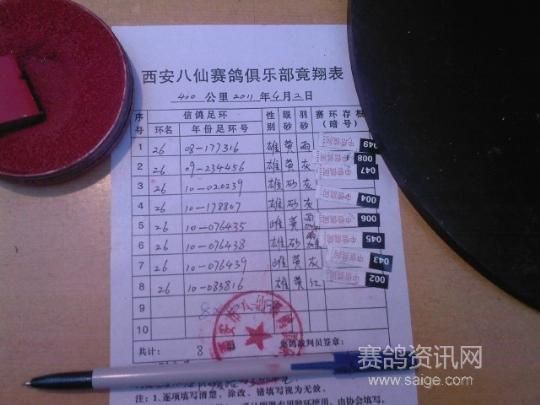 西安八仙赛鸽俱乐部竟翔表
400 公里 2011 年 4月 2日
序号 信鸽足环 性别 眼砂 羽砂 赛环存根(暗号)
环名 年份足环号
1 26 08-177316 雄 黄 雨 049
2 26 09-234456 雄 黄 灰 008
3 26 10-020239 雄 砂 灰 047
4 26 10-178807 雄 砂 灰 004
5 26 10-076435 雌 黄 006
6 26 10-076438 雄 砂 045
7 26 10-076439 雌 黄 灰 043
8 26 10-083816 雄 黄 红 002
9
10
共计: 8 集鸽裁判员签章:
注:1、逐项填写清楚、涂改、错填写视为无效。
赛鸽资讯网
www.saige.com